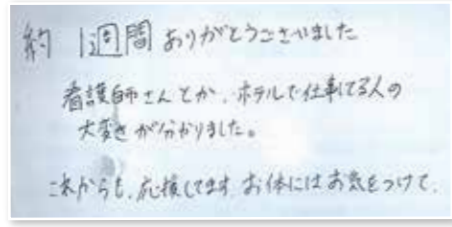 約 1週間 ありがとうございました
看護師さんとか、ホテルで仕事してる人の
大変さが分かりました。
これからも、応援してます。お体にはお気をつけて。